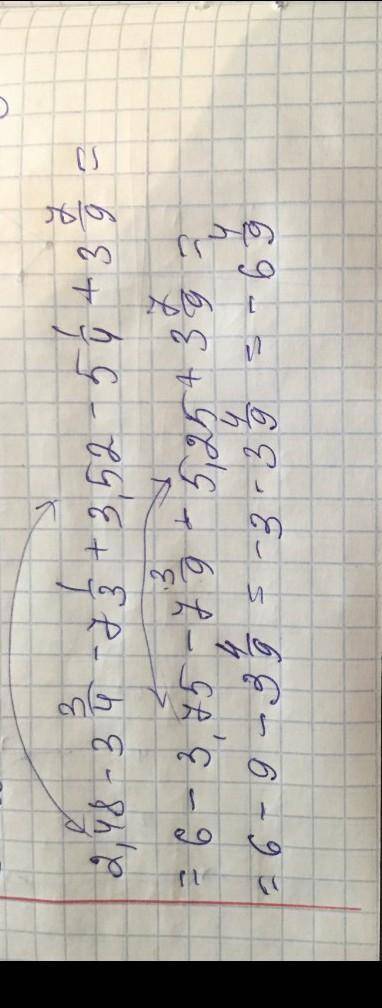 2,48 - 3 3/4 - 7 1/3 + 3,52 - 5 1/4 + 3 7/9 =
= 6 - 3,75 - 7 3/9 - 5,25 + 3 7/9 =
= 6 - 9 - 3 4/9 = -3 - 3 4/9 = -6 4/9